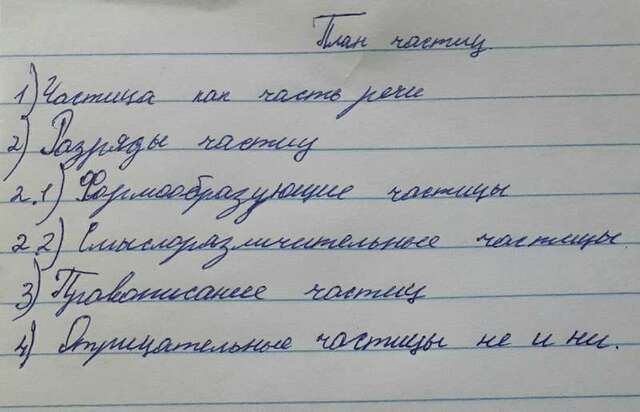 План частиц
1) Частица как часть речи
2) Разряды частиц
2.1) Формообразующие частицы
2.2) Смыслоразличительные частицы.
3) Правописание частиц
4) Отрицательные частицы не и ни.